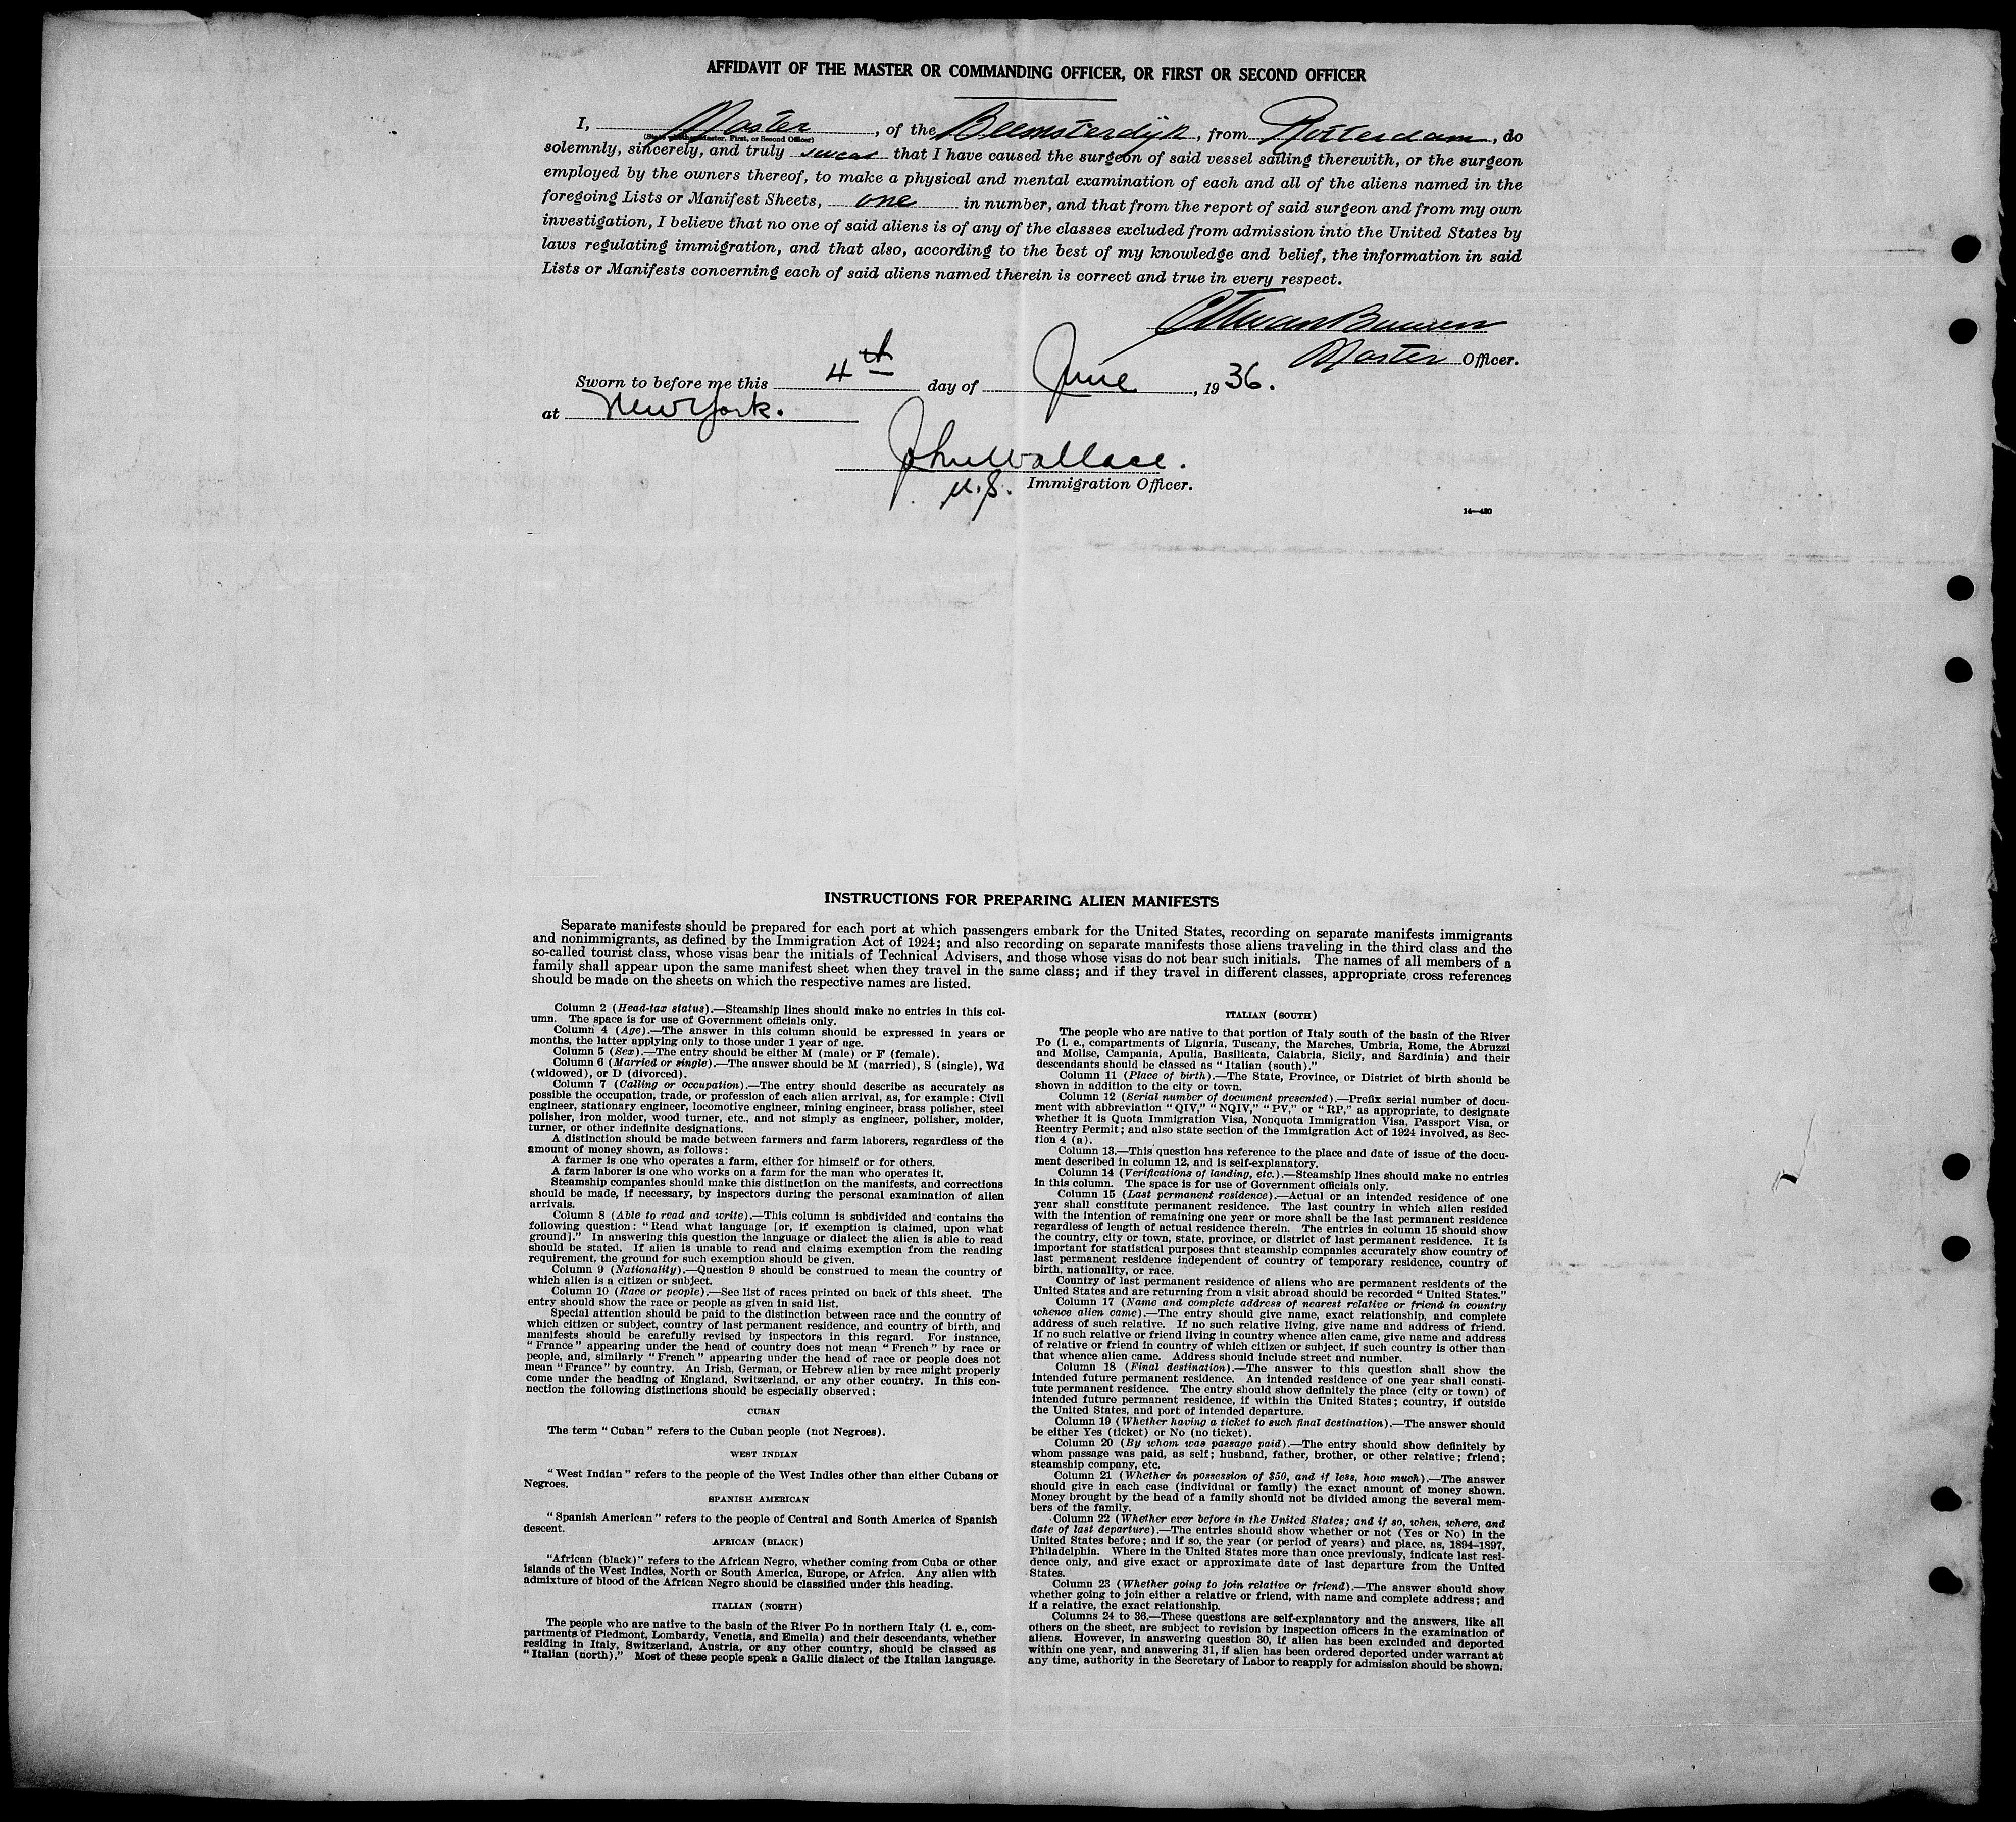 AFFIDAVIT OF THE MASTER OR COMMANDING OFFICER, OR FIRST OR SECOND OFFICER
I, Master, of the Beemsterdijk, from Rotterdam, do
(State whether Master, First, or Second Officer)
solemnly, sincerely, and truly swear that I have caused the surgeon of said vessel sailing therewith, or the surgeon
employed by the owners thereof, to make a physical and mental examination of each and all of the aliens named in the
foregoing Lists or Manifest Sheets, one in number, and that from the report of said surgeon and from my own
investigation, I believe that no one of said aliens is of any of the classes excluded from admission into the United States by
laws regulating immigration, and that also, according to the best of my knowledge and belief, the information in said
Lists or Manifests concerning each of said aliens named therein is correct and true in every respect.
Master Officer.
Sworn to before me this 4th day of June, 1936.
at New York.
John Wallace.
U.S. Immigration Officer.
14—430
INSTRUCTIONS FOR PREPARING ALIEN MANIFESTS
Separate manifests should be prepared for each port at which passengers embark for the United States, recording on separate manifests immigrants
and nonimmigrants, as defined by the Immigration Act of 1924; and also recording on separate manifests those aliens traveling in the third class and the
so-called tourist class, whose visas bear the initials of Technical Advisers, and those whose visas do not bear such initials. The names of all members of a
family shall appear upon the same manifest sheet when they travel in the same class; and if they travel in different classes, appropriate cross references
should be made on the sheets on which the respective names are listed.
Column 2 (Head-tax status).—Steamship lines should make no entries in this col-
umn. The space is for use of Government officials only.
Column 4 (Age).—The answer in this column should be expressed in years or
months, the latter applying only to those under 1 year of age.
Column 5 (Sex).—The entry should be either M (male) or F (female).
Column 6 (Married or single).—The answer should be M (married), S (single), Wd
(widowed), or D (divorced).
Column 7 (Calling or occupation).—The entry should describe as accurately as
possible the occupation, trade, or profession of each alien arrival, as, for example: Civil
engineer, stationary engineer, locomotive engineer, mining engineer, brass polisher, steel
polisher, iron molder, wood turner, etc., and not simply as engineer, polisher, molder,
turner, or other indefinite designations.
A distinction should be made between farmers and farm laborers, regardless of the
amount of money shown, as follows:
A farmer is one who operates a farm, either for himself or for others.
A farm laborer is one who works on a farm for the man who operates it.
Steamship companies should make this distinction on the manifests, and corrections
should be made, if necessary, by inspectors during the personal examination of alien
arrivals.
Column 8 (Able to read and write).—This column is subdivided and contains the
following question: "Read what language [or, if exemption is claimed, upon what
ground]." In answering this question the language or dialect the alien is able to read
should be stated. If alien is unable to read and claims exemption from the reading
requirement, the ground for such exemption should be given.
Column 9 (Nationality).—Question 9 should be construed to mean the country of
which alien is a citizen or subject.
Column 10 (Race or people).—See list of races printed on back of this sheet. The
entry should show the race or people as given in said list.
Special attention should be paid to the distinction between race and the country of
which citizen or subject, country of last permanent residence, and country of birth, and
manifests should be carefully revised by inspectors in this regard. For instance,
"France" appearing under the head of country does not mean "French" by race or
people, and, similarly "French" appearing under the head of race or people does not
mean "France" by country. An Irish, German, or Hebrew alien by race might properly
come under the heading of England, Switzerland, or any other country. In this con-
nection the following distinctions should be especially observed:
CUBAN
The term "Cuban" refers to the Cuban people (not Negroes).
WEST INDIAN
"West Indian" refers to the people of the West Indies other than either Cubans or
Negroes.
SPANISH AMERICAN
"Spanish American" refers to the people of Central and South America of Spanish
descent.
AFRICAN (BLACK)
"African (black)" refers to the African Negro, whether coming from Cuba or other
islands of the West Indies, North or South America, Europe, or Africa. Any alien with
admixture of blood of the African Negro should be classified under this heading.
ITALIAN (NORTH)
The people who are native to the basin of the River Po in northern Italy (i. e., com-
partments of Piedmont, Lombardy, Venetia, and Emelia) and their descendants, whether
residing in Italy, Switzerland, Austria, or any other country, should be classed as
"Italian (north)." Most of these people speak a Gallic dialect of the Italian language.
ITALIAN (SOUTH)
The people who are native to that portion of Italy south of the basin of the River
Po (i. e., compartments of Liguria, Tuscany, the Marches, Umbria, Rome, the Abruzzi
and Molise, Campania, Apulia, Basilicata, Calabria, Sicily, and Sardinia) and their
descendants should be classed as "Italian (south)."
Column 11 (Place of birth).—The State, Province, or District of birth should be
shown in addition to the city or town.
Column 12 (Serial number of document presented).—Prefix serial number of docu-
ment with abbreviation "QIV," "NQIV," "PV," or "RP," as appropriate, to designate
whether it is Quota Immigration Visa, Nonquota Immigration Visa, Passport Visa, or
Reentry Permit; and also state section of the Immigration Act of 1924 involved, as Sec-
tion 4 (a).
Column 13.—This question has reference to the place and date of issue of the docu-
ment described in column 12, and is self-explanatory.
Column 14 (Verifications of landing, etc.).—Steamship lines should make no entries
in this column. The space is for use of Government officials only.
Column 15 (Last permanent residence).—Actual or an intended residence of one
year shall constitute permanent residence. The last country in which alien resided
with the intention of remaining one year or more shall be the last permanent residence
regardless of length of actual residence therein. The entries in column 15 should show
the country, city or town, state, province, or district of last permanent residence. It is
important for statistical purposes that steamship companies accurately show country of
last permanent residence independent of country of temporary residence, country of
birth, nationality, or race.
Country of last permanent residence of aliens who are permanent residents of the
United States and are returning from a visit abroad should be recorded "United States."
Column 17 (Name and complete address of nearest relative or friend in country
whence alien came).—The entry should give name, exact relationship, and complete
address of such relative. If no such relative living, give name and address of friend.
If no such relative or friend living in country whence alien came, give name and address
of relative or friend in country of which citizen or subject, if such country is other than
that whence alien came. Address should include street and number.
Column 18 (Final destination).—The answer to this question shall show the
intended future permanent residence. An intended residence of one year shall consti-
tute permanent residence. The entry should show definitely the place (city or town) of
intended future permanent residence, if within the United States; country, if outside
the United States, and port of intended departure.
Column 19 (Whether having a ticket to such final destination).—The answer should
be either Yes (ticket) or No (no ticket).
Column 20 (By whom was passage paid).—The entry should show definitely by
whom passage was paid, as self; husband, father, brother, or other relative; friend;
steamship company, etc.
Column 21 (Whether in possession of $50, and if less, how much).—The answer
should give in each case (individual or family) the exact amount of money shown.
Money brought by the head of a family should not be divided among the several mem-
bers of the family.
Column 22 (Whether ever before in the United States; and if so, when, where, and
date of last departure).—The entries should show whether or not (Yes or No) in the
United States before; and if so, the year (or period of years) and place, as, 1894–1897,
Philadelphia. Where in the United States more than once previously, indicate last resi-
dence only, and give exact or approximate date of last departure from the United
States.
Column 23 (Whether going to join relative or friend).—The answer should show
whether going to join either a relative or friend, with name and complete address; and
if a relative, the exact relationship.
Columns 24 to 36.—These questions are self-explanatory and the answers, like all
others on the sheet, are subject to revision by inspection officers in the examination of
aliens. However, in answering question 30, if alien has been excluded and deported
within one year, and answering 31, if alien has been ordered deported under warrant at
any time, authority in the Secretary of Labor to reapply for admission should be shown.